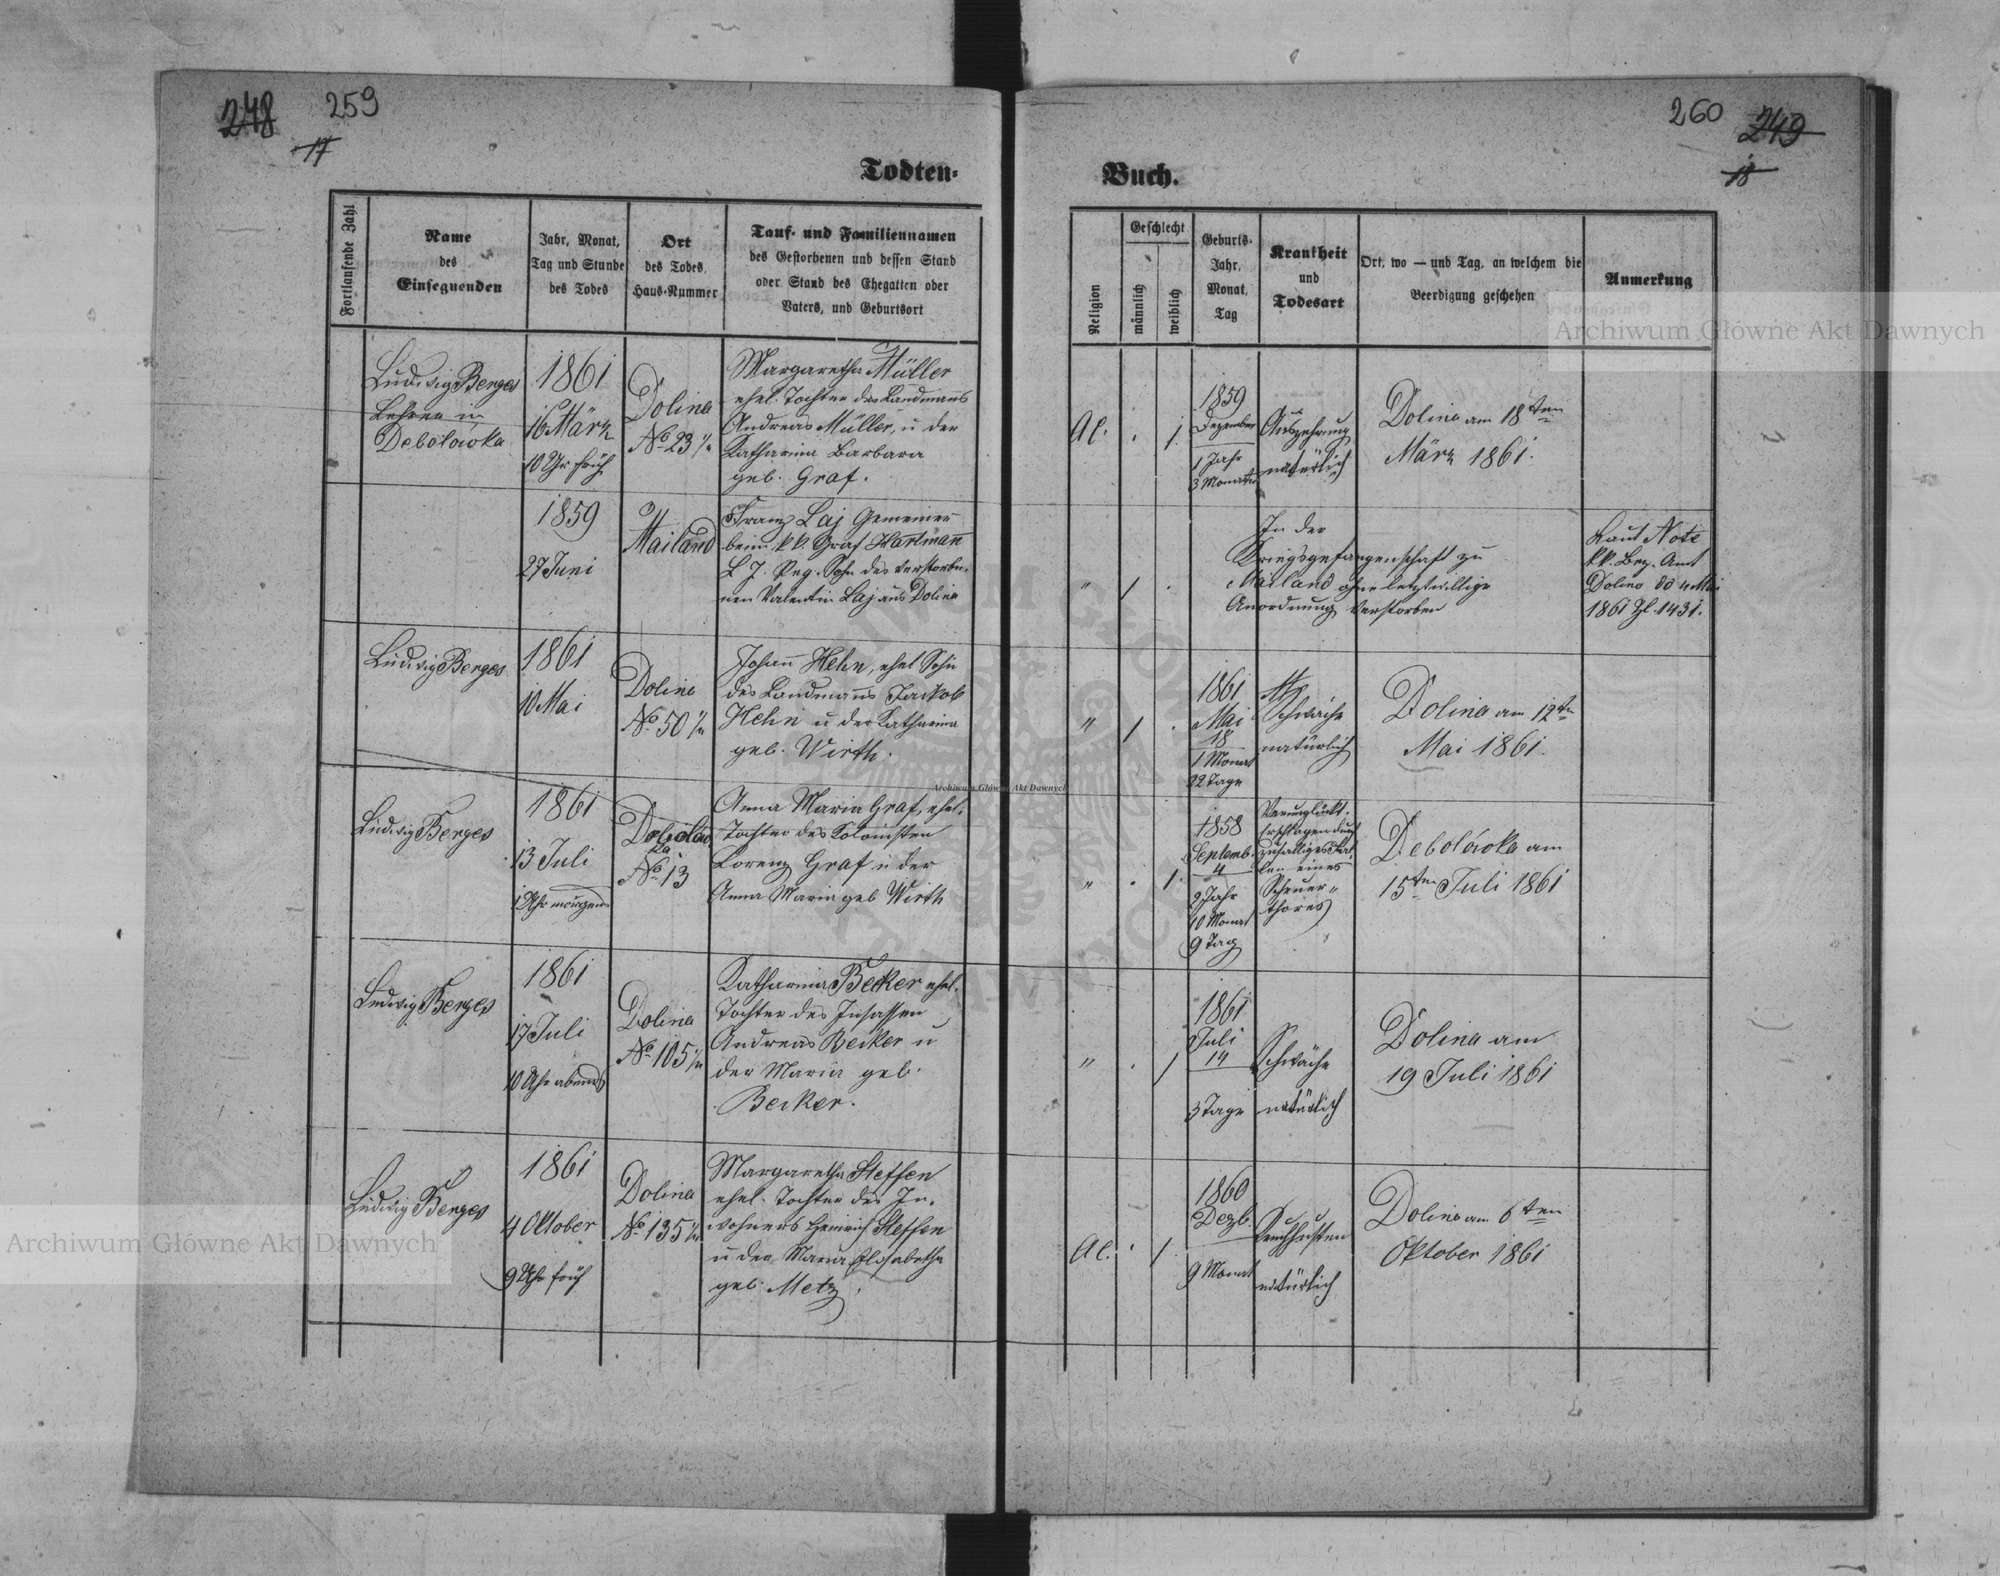 248 259
17
260 249
18
Todten-
Buch.
Fortlaufende Zahl
Name
des
Einsegnenden
Jahr, Monat,
Tag und Stunde
des Todes
Ort
des Todes,
Haus-Nummer
Tauf- und Familiennamen
des Gestorbenen und dessen Stand
oder Stand des Ehegatten oder
Vaters, und Geburtsort
Religion
Geschlecht
männlich
weiblich
Geburts-
Jahr,
Monat,
Tag
Krankheit
und
Todesart
Ort, wo — und Tag, an welchem die
Beerdigung geschehen
Anmerkung
Ludwig Berges
Lehrer in
Debolówka
1861
16 März
10 Uhr früh
Dolina
No 23
Margaretha Müller
ehel. Tochter des Landmanns
Andreas Müller, u der
Katharina Barbara
geb. Graf.
1.
1859
Dezember
1 Jahr
3 Monate
Auszehrung
natürlich
Dolina am 18ten
März 1861.
1859
27 Juni
Mailand
Franz Laj Gemeiner
beim k.k. Graf Hartmann
L J. Reg. Sohn des verstorbe-
nen Valentin Laj aus Dolina
" 1 .
In der
Kriegsgefangenschaft zu
Mailand ohne letztwillige
Anordnung verstorben
Laut Note
k.k. Bez. Amt
Dolina dd 4 Mai
1861 Zl. 1431.
Ludwig Berges
1861
10 Mai
Dolina
No 50
Johann Hehn, ehel Sohn
des Landmanns Jackob
Hehn u der Katharina
geb. Wirth.
" 1 .
1861
Mai
18
1 Monat
22 Tage
Schwäche
natürlich
Dolina am 12ten
Mai 1861.
Ludwig Berges
1861
13 Juli
1 Uhr morgens
No 13
Anna Maria Graf, ehel.
Tochter des Kolonisten
Lorenz Graf u der
Anna Maria geb Wirth
" . 1.
1858
Septemb.
4
2 Jahr
10 Monat
9 Tag
Verunglückt.
Erschlagen durch
zufälliges Fal-
len eines
Scheuer-
thores
Debolówka am
15ten Juli 1861
Ludwig Berges
1861
17 Juli
10 Uhr abends
Dolina
No 105
Katharina Becker ehel.
Tochter des Insassen
Andreas Becker u
der Maria geb.
Becker.
" . 1
1861
Juli
14
3 Tage
Schwäche
natürlich
Dolina am
19 Juli 1861
Ludwig Berges
1861
4 Oktober
9 Uhr früh
Dolina
No 135
Margaretha Steffen
ehel. Tochter des In-
wohners Heinrich Steffen
u der Maria Elisabetha
geb. Metz.
1.
1860
Dezb.
9 Monat
Keuchhusten
natürlich
Dolina am 6ten
Oktober 1861
Archiwum Główne Akt Dawnych
Archiwum Główne Akt Dawnych
Archiwum Główne Akt Dawnych